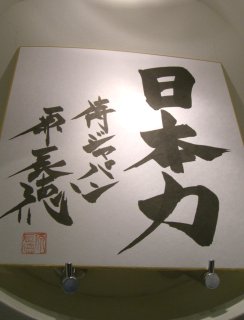 日本力
侍ジャパン
原辰徳